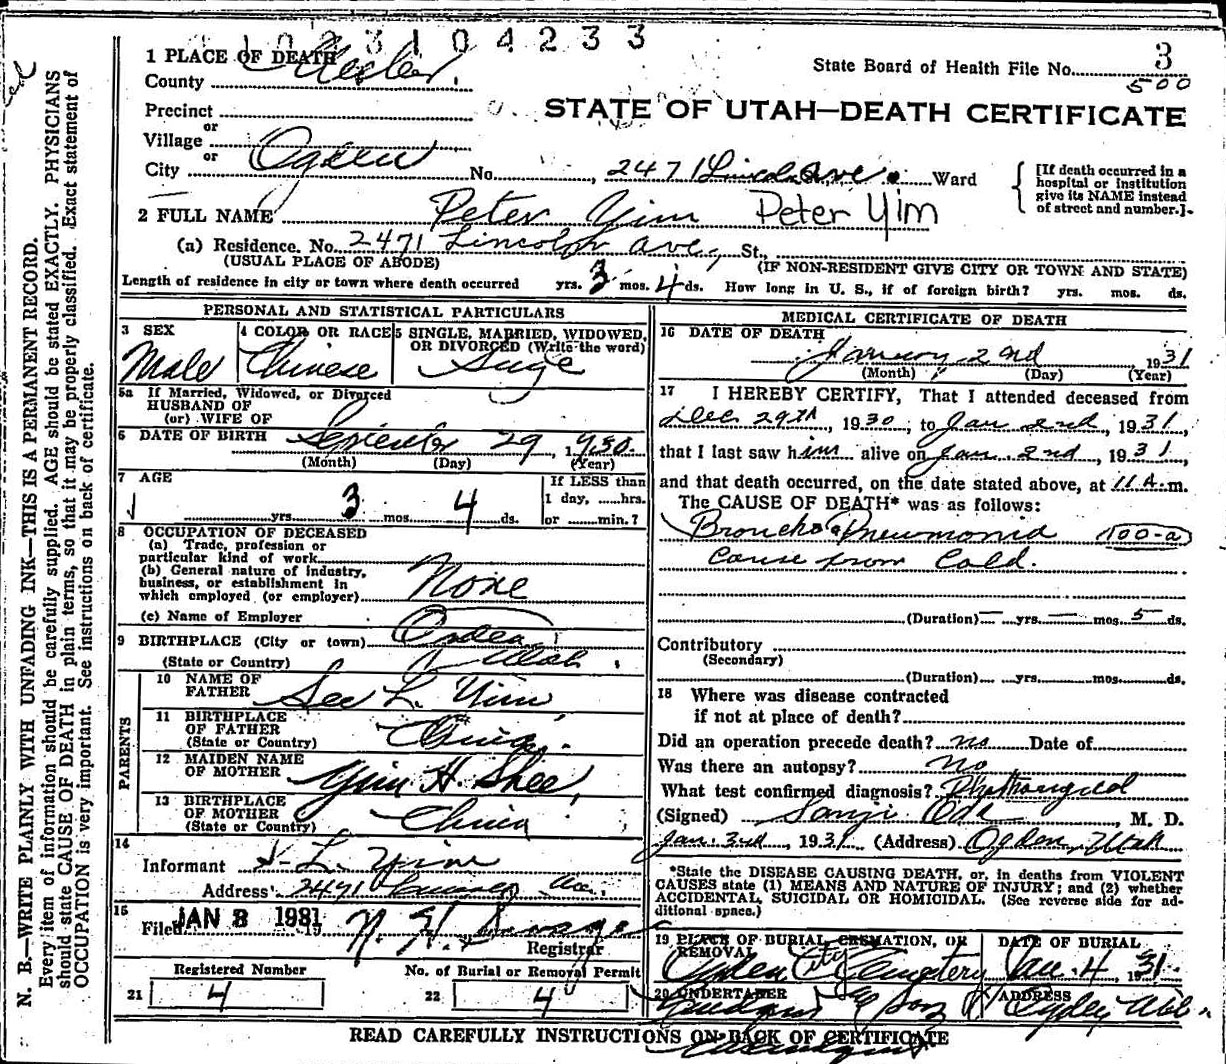 1 0 2 3 1 0 4 2 3 3
1 PLACE OF DEATH
County Weber.
State Board of Health File No. 3
500
Precinct
or
STATE OF UTAH—DEATH CERTIFICATE
Village
or
City Ogden No. 2471 Lincoln Ave. Ward
[If death occurred in a hospital or institution give its NAME instead of street and number.]
2 FULL NAME Peter Yim Peter Yim
(a) Residence. No. 2471 Lincoln Ave, St.,
(USUAL PLACE OF ABODE) (IF NON-RESIDENT GIVE CITY OR TOWN AND STATE)
Length of residence in city or town where death occurred yrs. 3 mos. 4 ds. How long in U. S., if of foreign birth? yrs. mos. ds.
PERSONAL AND STATISTICAL PARTICULARS
3 SEX
Male
4 COLOR OR RACE
Chinese
5 SINGLE, MARRIED, WIDOWED,
OR DIVORCED (Write the word)
5a If Married, Widowed, or Divorced
HUSBAND OF
(or) WIFE OF
6 DATE OF BIRTH September 29, 1930
(Month) (Day) (Year)
7 AGE
yrs. 3 mos. 4 ds.
If LESS than
1 day, ......hrs.
or ........min.?
8 OCCUPATION OF DECEASED
(a) Trade, profession or
particular kind of work
(b) General nature of industry,
business, or establishment in
which employed (or employer) None
(c) Name of Employer
9 BIRTHPLACE (City or town) Ogden
(State or Country) Utah.
PARENTS
10 NAME OF
FATHER See L. Yim
11 BIRTHPLACE
OF FATHER
(State or Country) China.
12 MAIDEN NAME
OF MOTHER Yim H. Shee
13 BIRTHPLACE
OF MOTHER
(State or Country) China
14
Informant L. Yim
Address 2471 Ave.
15
Filed JAN 3 1931 19
Registrar
Registered Number
21 4
No. of Burial or Removal Permit
22 4
MEDICAL CERTIFICATE OF DEATH
16 DATE OF DEATH
January 2nd 1931
(Month) (Day) (Year)
17 I HEREBY CERTIFY, That I attended deceased from
Dec 29th, 1930, to Jan 2nd, 1931,
that I last saw him alive on Jan. 2nd, 1931,
and that death occurred, on the date stated above, at 11 A.m.
The CAUSE OF DEATH* was as follows:
Broncho Pneumonia 100-a
Cause from Cold.
(Duration) — yrs. — mos. 5 ds.
Contributory
(Secondary)
(Duration) yrs. mos. ds.
18 Where was disease contracted
if not at place of death?
Did an operation precede death? no Date of
Was there an autopsy? No
What test confirmed diagnosis?
(Signed) Sanji Oda, M. D.
Jan. 3rd, 1931 (Address) Ogden, Utah
*State the DISEASE CAUSING DEATH, or, in deaths from VIOLENT
CAUSES state (1) MEANS AND NATURE OF INJURY; and (2) whether
ACCIDENTAL, SUICIDAL OR HOMICIDAL. (See reverse side for ad-
ditional space.)
19 PLACE OF BURIAL, CREMATION, OR
REMOVAL
Ogden City Cemetery
DATE OF BURIAL
Jan. 4, 1931.
20 UNDERTAKER
& Sons
ADDRESS
Ogden
READ CAREFULLY INSTRUCTIONS ON BACK OF CERTIFICATE
N. B.—WRITE PLAINLY WITH UNFADING INK—THIS IS A PERMANENT RECORD.
Every item of information should be carefully supplied. AGE should be stated EXACTLY. PHYSICIANS
should state CAUSE OF DEATH in plain terms, so that it may be properly classified. Exact statement of
OCCUPATION is very important. See instructions on back of certificate.